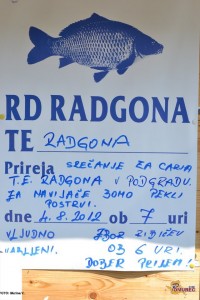 RD RADGONA
TE RADGONA
Prireja SREČANJE ZA CARJA
T.E. RADGONA V PODGRADU.
ZA NAVIJAČE BOMO PEKLI
POSTRVI.
dne 4.8.2012 ob 7 uri
VLJUDNO ZBOR
VABLJENI. OB 6 URI.
DOBER PRIJEM!